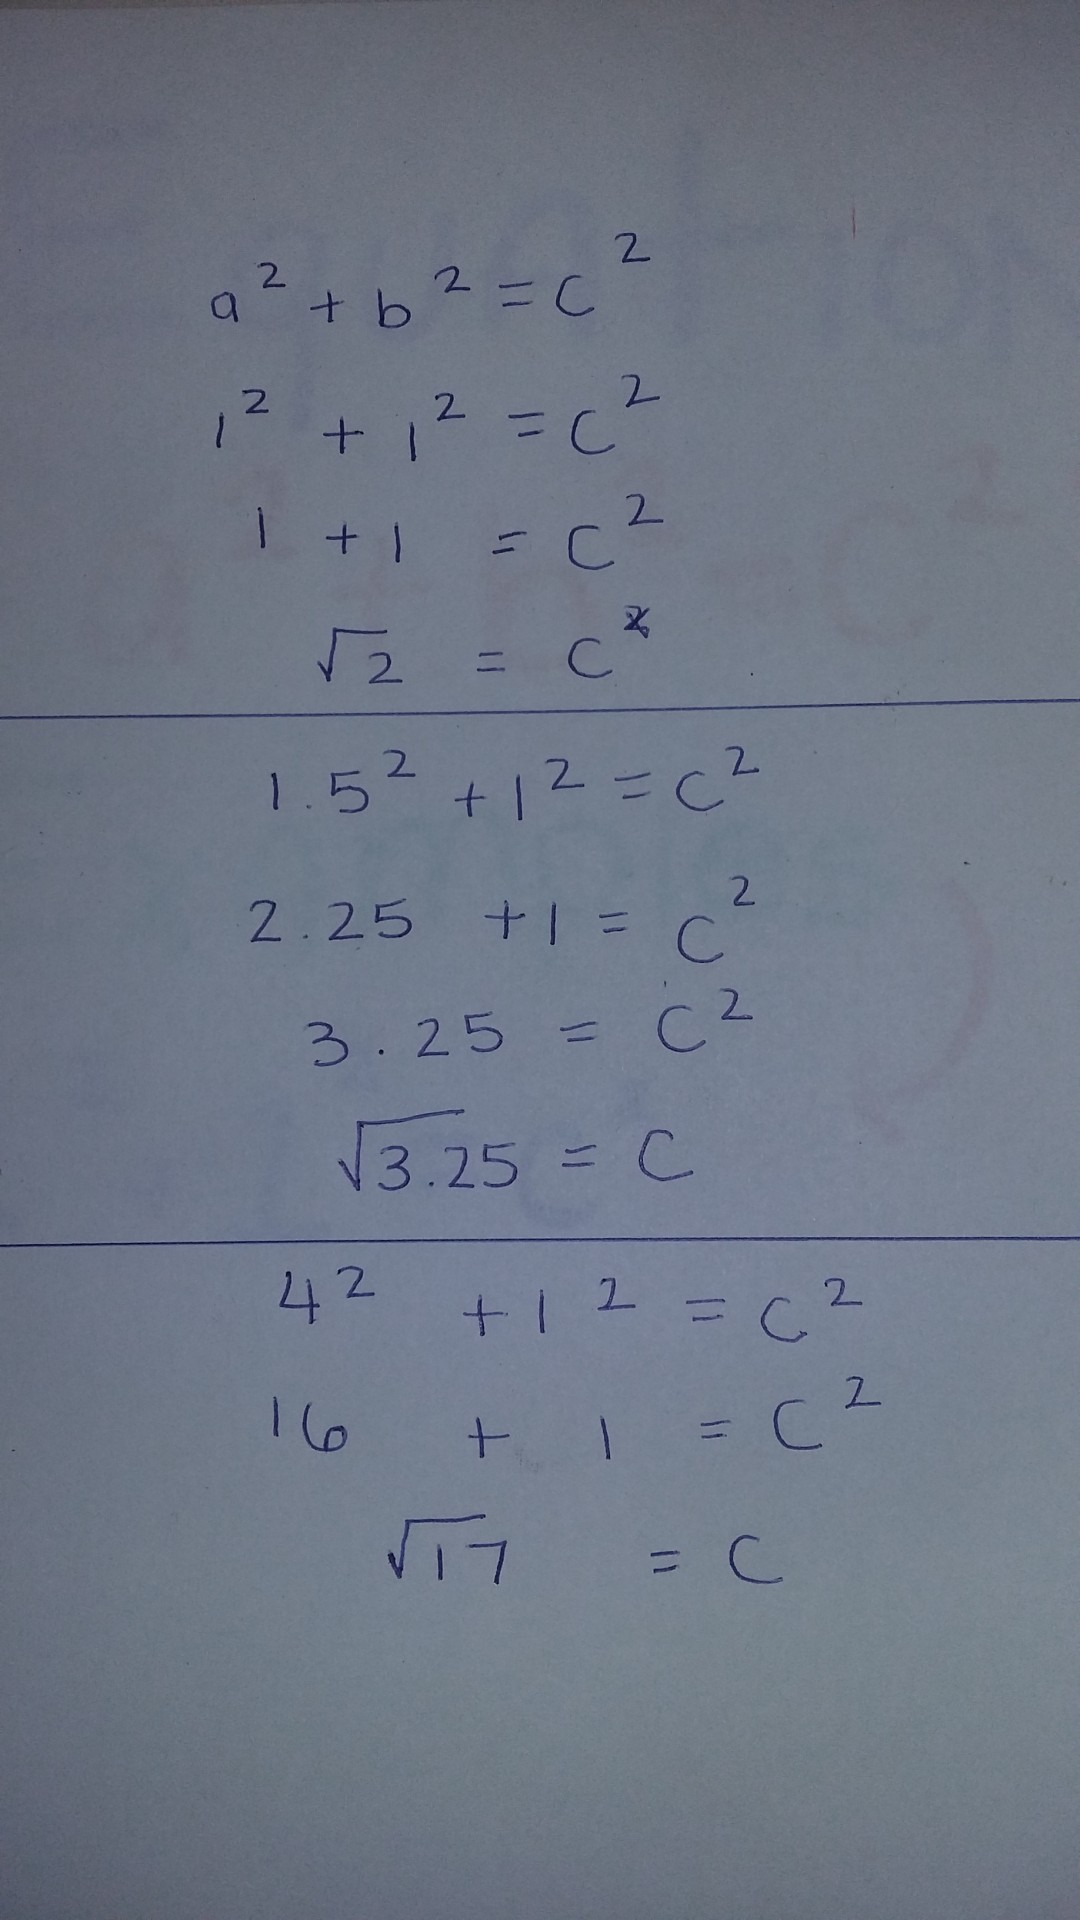 a² + b² = c²
1² + 1² = c²
1 + 1 = c²
√2 = c
1.5² + 1² = c²
2.25 + 1 = c²
3.25 = c²
√3.25 = c
4² + 1² = c²
16 + 1 = c²
√17 = c